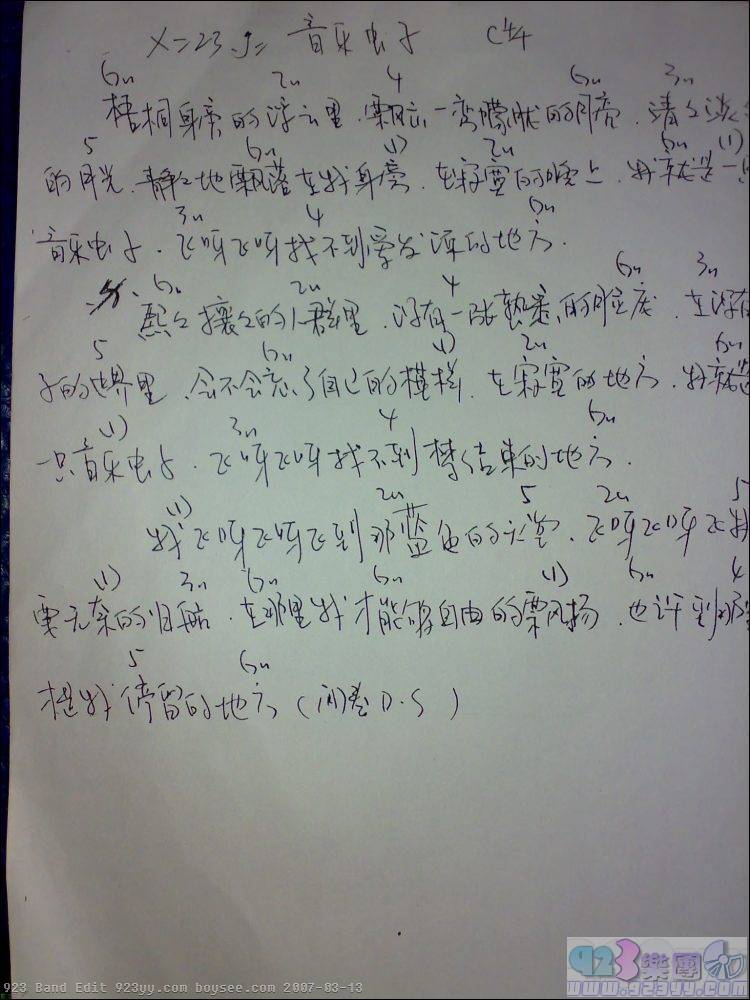 X=23 J= 音乐虫子 C 4/4
6m 2m 4 6m 3m
梧桐身旁的浮云里、飘一弯朦胧的月亮、清淡
5 6m (1) 2m 6m (1)
的月光、静々地飘落在我身旁、在寂寞的晚上、我就是一只
3m 4 6m
音乐虫子、飞呀飞呀找不到爱发源的地方.
6m 2m 4 6m 3m
熙々攘々的人群里、没有一张熟悉的脸庞、在没有
5 6m (1) 2m 6m
子的世界里、会不会忘了自己的模样、在寂寞的地方、我就是
(1) 3m 4 6m
一只音乐虫子、飞呀飞呀找不到梦结束的地方.
(1) 2m 5 2m 5
我飞呀飞呀飞到那蓝色的天堂、飞呀飞呀飞我
(1) 3m 6m 6m (1) 6m 4
要无奈的归航、在那里我才能够自由的飘扬、也许到那里
5 6m
才是我停留的地方(间奏D.S)
923 Band Edit 923yy.com boysee.com 2007-03-13
923樂團
www.923yy.com